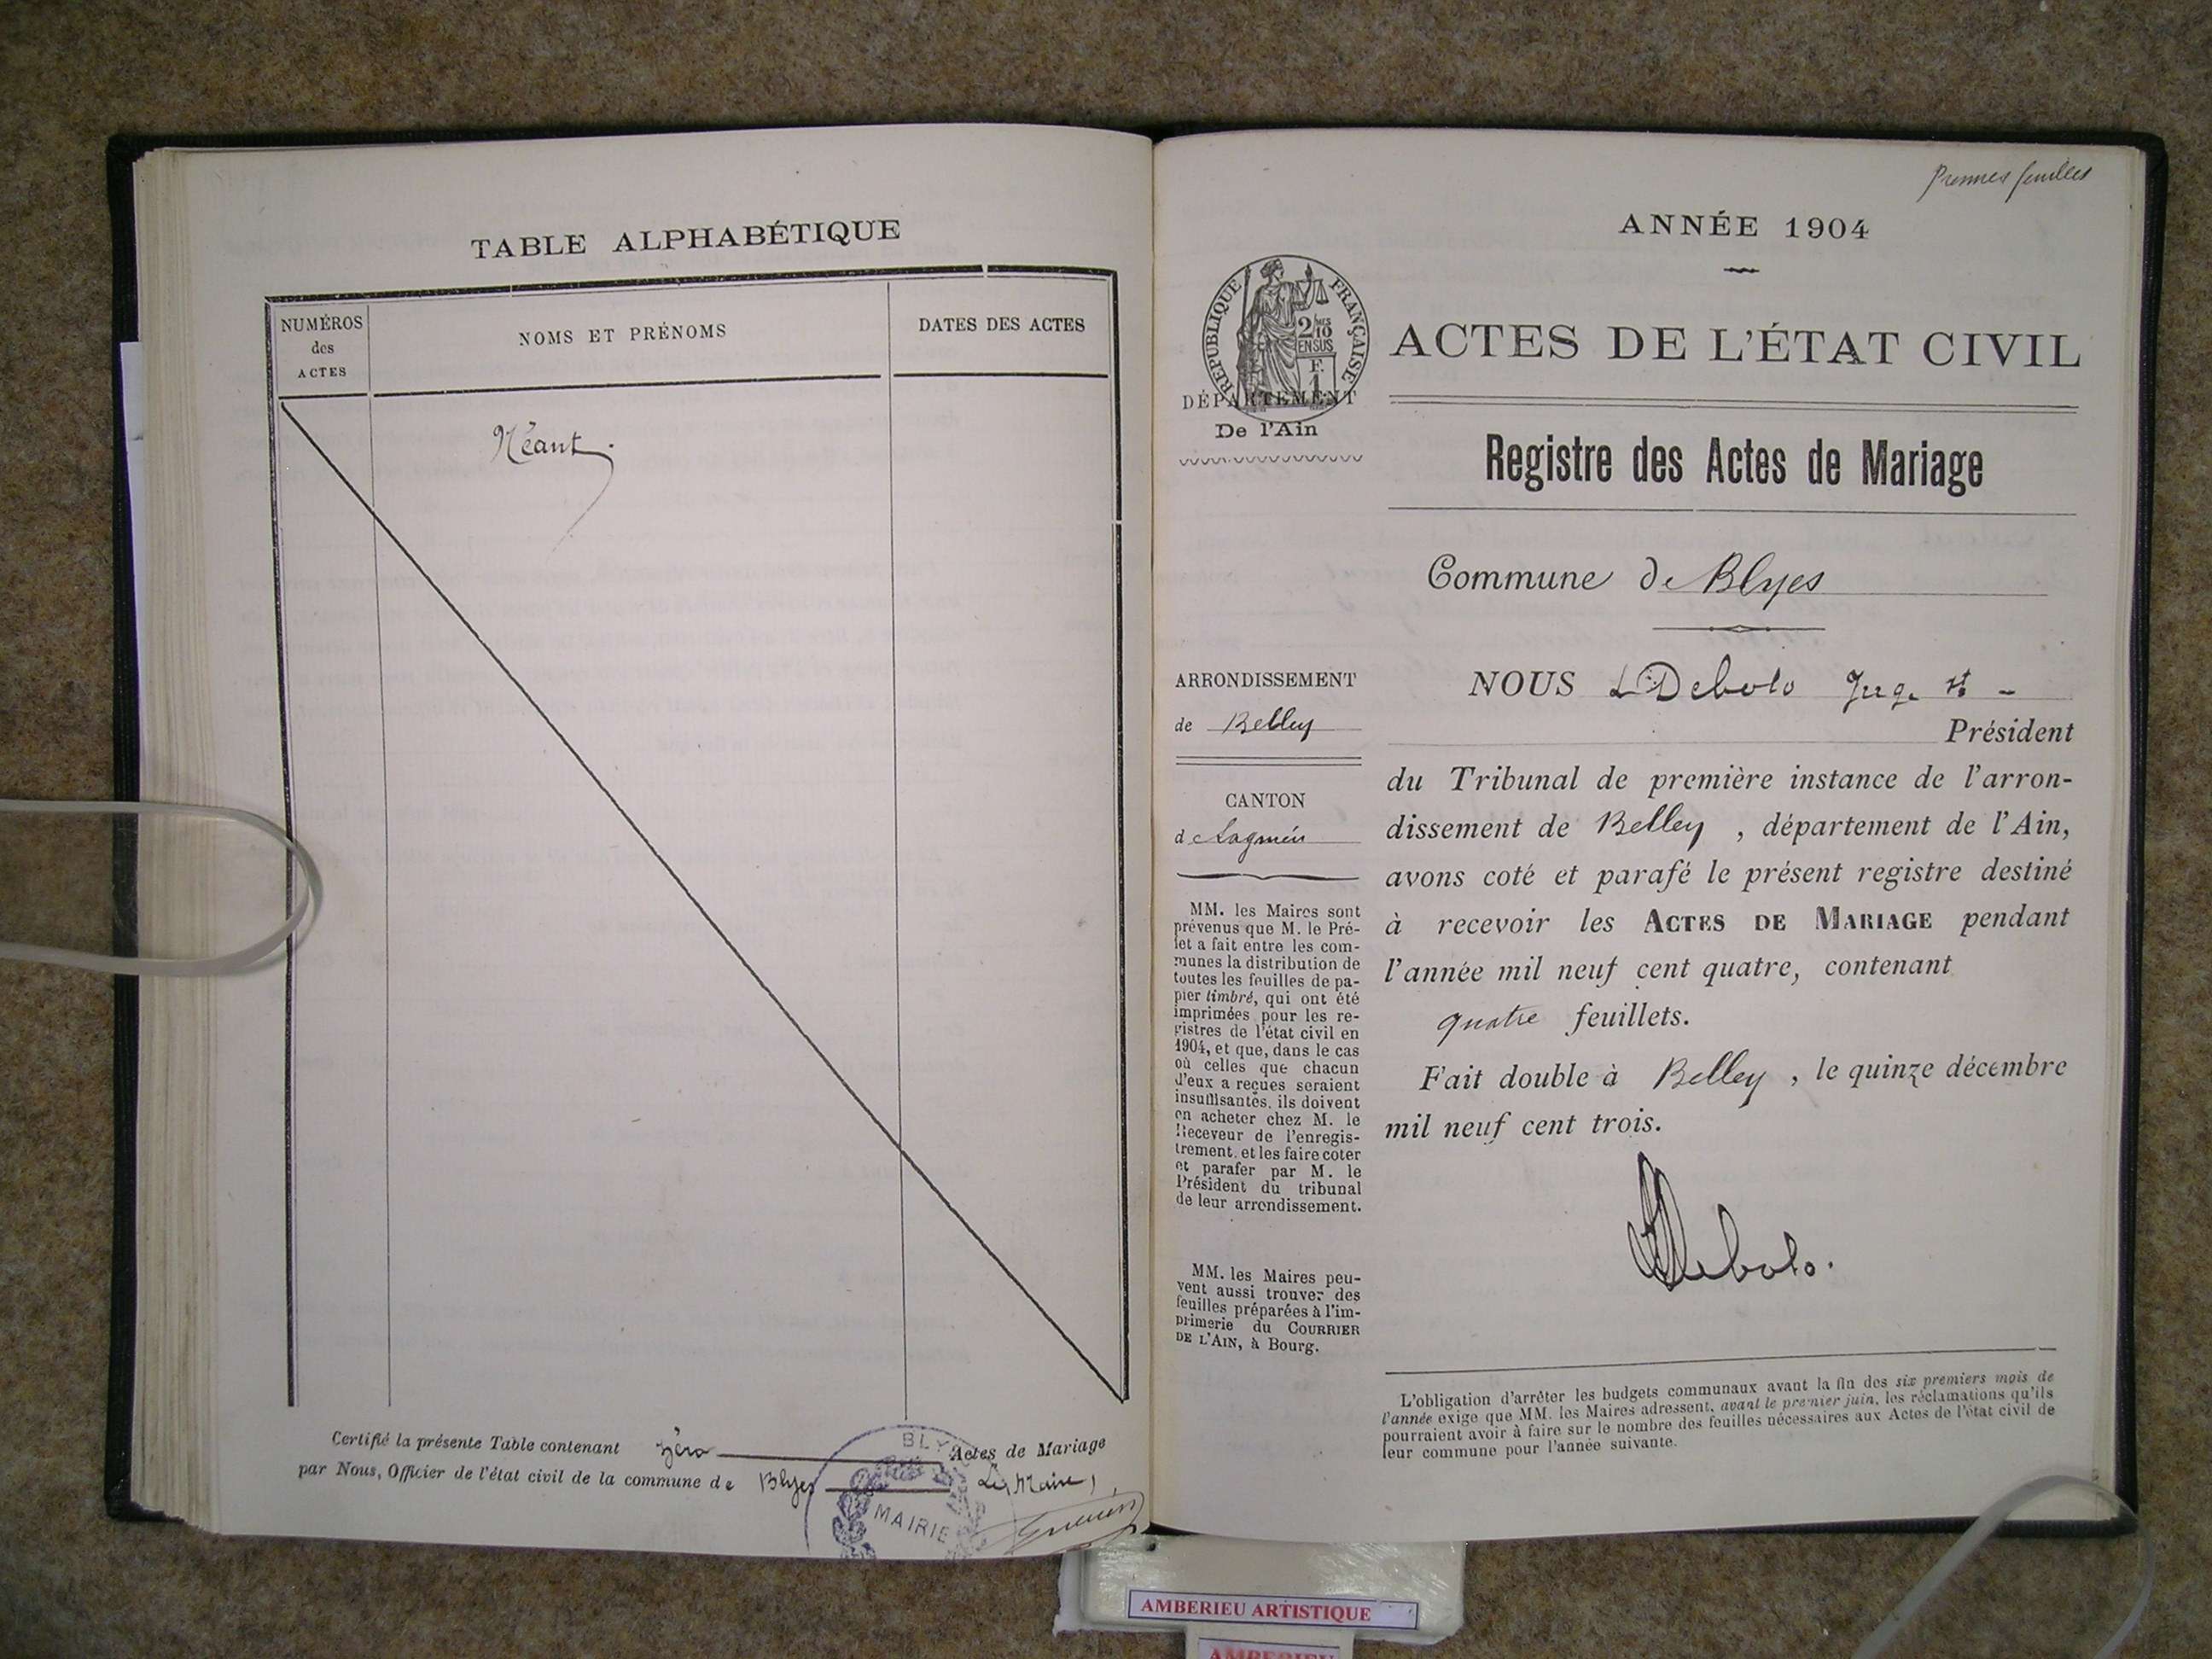 TABLE ALPHABÉTIQUE
NUMÉROS
des
ACTES
NOMS ET PRÉNOMS
DATES DES ACTES
Néant.
Certifié la présente Table contenant zéro Actes de Mariage
par Nous, Officier de l'état civil de la commune de Blyes Le Maire,
BLYES
MAIRIE
ANNÉE 1904
RÉPUBLIQUE FRANÇAISE
2/10 MES
EN SUS
F.
1
DÉPARTEMENT
De l'Ain
ACTES DE L'ÉTAT CIVIL
Registre des Actes de Mariage
Commune de Blyes
ARRONDISSEMENT
de Belley
CANTON
MM. les Maires sont
prévenus que M. le Pré-
fet a fait entre les com-
munes la distribution de
toutes les feuilles de pa-
pier timbré, qui ont été
imprimées pour les re-
gistres de l'état civil en
1904, et que, dans le cas
où celles que chacun
d'eux a reçues seraient
insuffisantes, ils doivent
en acheter chez M. le
Receveur de l'enregis-
trement, et les faire coter
et parafer par M. le
Président du tribunal
de leur arrondissement.
MM. les Maires peu-
vent aussi trouver des
feuilles préparées à l'im-
primerie du COURRIER
DE L'AIN, à Bourg.
NOUS Debolo Juge
Président
du Tribunal de première instance de l'arron-
dissement de Belley, département de l'Ain,
avons coté et parafé le présent registre destiné
à recevoir les ACTES DE MARIAGE pendant
l'année mil neuf cent quatre, contenant
quatre feuillets.
Fait double à Belley, le quinze décembre
mil neuf cent trois.
Debolo.
L'obligation d'arrêter les budgets communaux avant la fin des six premiers mois de
l'année exige que MM. les Maires adressent, avant le premier juin, les réclamations qu'ils
pourraient avoir à faire sur le nombre des feuilles nécessaires aux Actes de l'état civil de
leur commune pour l'année suivante.
AMBERIEU ARTISTIQUE
AMBERIEU